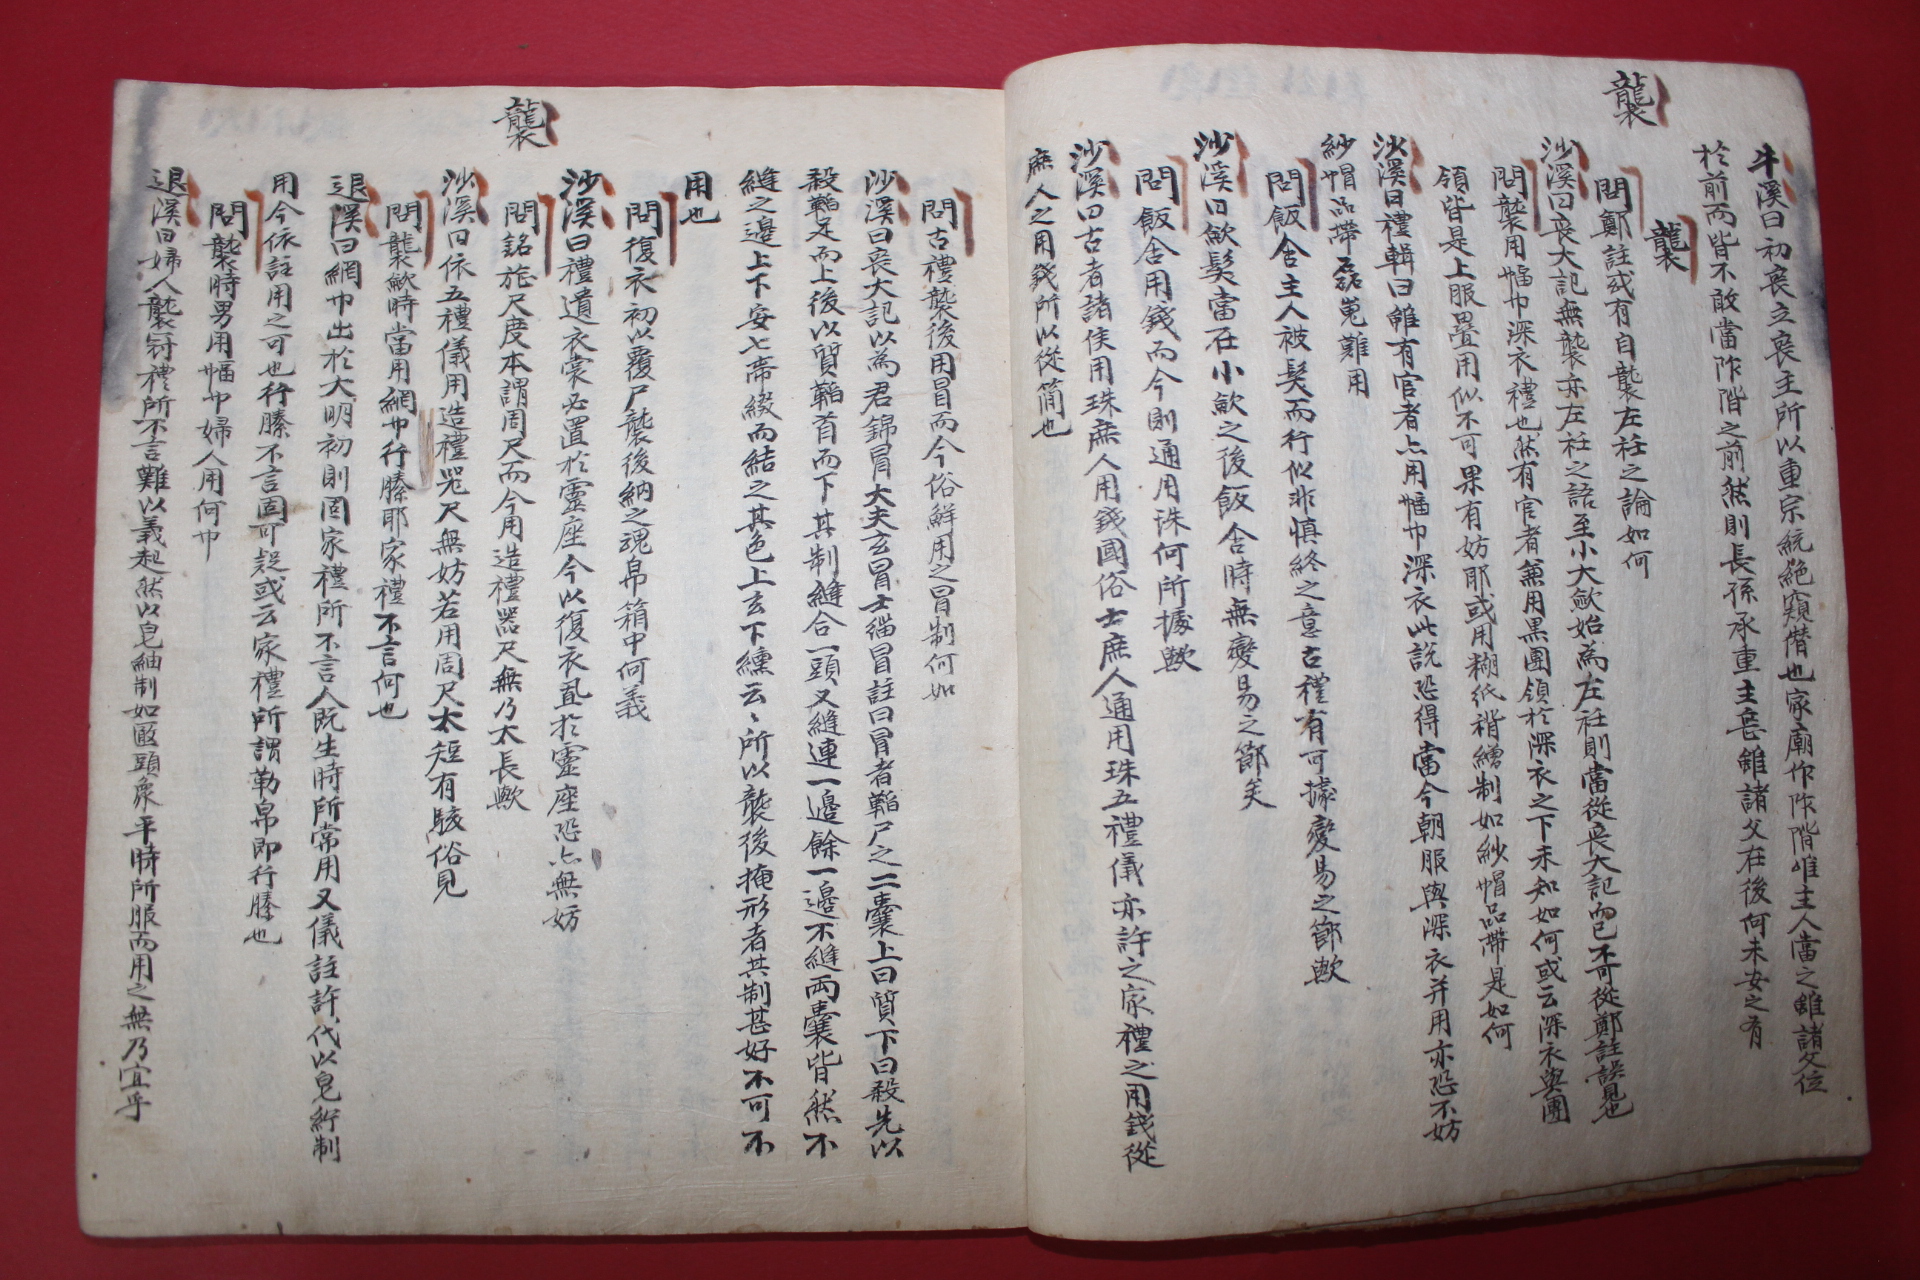 襲
牛溪曰初喪立喪主所以重宗統絶窺僭也家廟作阼階唯主人當之雖諸父位
於前而皆不敢當阼階之前然則長孫承重主喪雖諸父在後何未安之有
襲
問鄭註或有自襲左衽之論如何
沙溪曰喪大記無襲亦左衽之語至小大歛始為左衽則當從喪大記而已不可從鄭註誤見也
問襲用幅巾深衣禮也然有官者兼用黑團領於深衣之下未知如何或云深衣與團
領皆是上服疊用似不可果有妨耶或用糊紙褙繒制如紗帽品帶是如何
沙溪曰禮輯曰雖有官者亦用幅巾深衣此說恐得當今朝服與深衣并用亦恐不妨
紗帽品帶磊嵬難用
問飯含主人被髮而行似非慎終之意古禮有可據變易之節歟
沙溪曰歛髮當在小歛之後飯含時無變易之節矣
問飯含用錢而今則通用珠何所據歟
沙溪曰古者諸侯用珠庶人用錢國俗士庶人通用珠五禮儀亦許之家禮之用錢從
庶人之用錢所以從簡也
襲
問古禮襲後用冒而今俗鮮用之冒制何如
沙溪曰喪大記以為君錦冒大夫玄冒士緇冒註曰冒者韜尸之二囊上曰質下曰殺先以
殺韜足而上後以質韜首而下其制縫合一頭又縫連一邊餘一邊不縫兩囊皆然不
縫之邊上下安七帶綴而結之其色上玄下纁云〻所以襲後掩形者其制甚好不可不
用也
問復衣初以覆尸襲後納之魂帛箱中何義
沙溪曰禮遺衣裳必置於靈座今以復衣置於靈座恐亦無妨
問銘旌尺度本謂周尺而今用造禮器尺無乃太長歟
沙溪曰依五禮儀用造禮器尺無妨若用周尺太短有駭俗見
問襲歛時當用網巾行縢耶家禮不言何也
退溪曰網巾出於大明初則固家禮所不言人既生時所常用又儀註許代以皂紬制
用今依註用之可也行縢不言固可疑或云家禮所謂勒帛即行縢也
問襲時男用幅巾婦人用何巾
退溪曰婦人襲冠禮所不言難以義起然以皂紬制如匳頭象平時所服而用之無乃宜乎